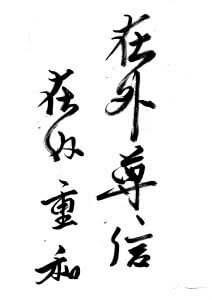 在外尊信
在内重和